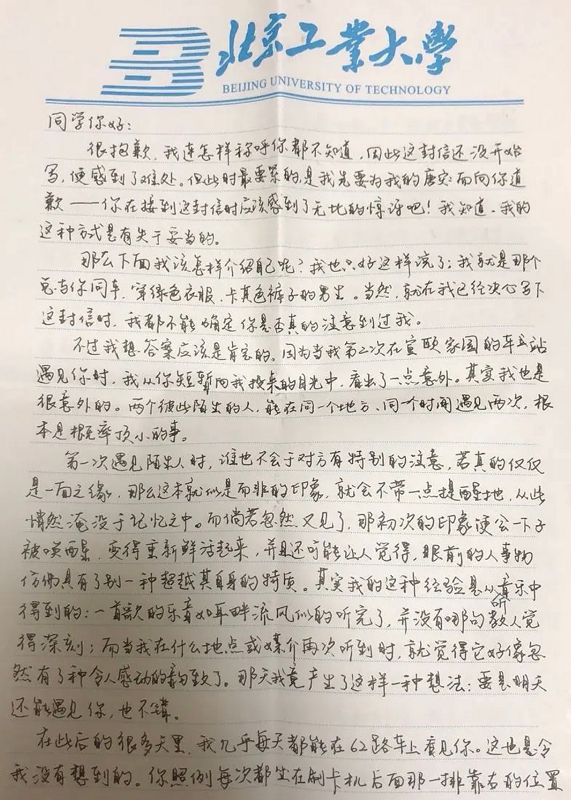 北京工業大学
BEIJING UNIVERSITY OF TECHNOLOGY
同学你好：
很抱歉，我连怎样称呼你都不知道，因此这封信还没开始
写，便感到了难处。但此时最要紧的，是我先要为我的唐突而向你道
歉——你在接到这封信时应该感到了无比的惊讶吧！我知道，我的
这种方式是有失于妥当的。
那么下面我该怎样介绍自己呢？我也只好这样说了：我就是那个
总与你同车，穿绿色衣服、卡其色裤子的男生。当然，就在我已经决心写下
这封信时，我都不能确定你是否真的注意到过我。
不过我想答案应该是肯定的。因为当我第二次在宣颐家园的车站
遇见你时，我从你短暂向我投来的目光中，看出了一点意外。其实我也是
很意外的。两个彼此陌生的人，能在同一个地方、同一个时间遇见两次，根
本是概率顶小的事。
第一次遇见陌生人时，谁也不会于对方有特别的注意，若真的仅仅
是一面之缘，那么这本就似是而非的印象，就会不带一点提醒地，从此
悄然淹没于记忆之中。而倘若忽然又见了，那初次的印象便会一下子
被唤醒，变得重新鲜活起来，并且还可能让人觉得，眼前的人事物
仿佛具有了别一种超越其自身的特质。其实我的这种经验是从听音乐中
得到的：一首歌的乐音如耳畔流风似的听完了，并没有哪句教人觉
得深刻；而当我在什么地点或媒介再次听到时，就觉得它好像忽
然有了种令人感动的韵致了。那天我竟产生了这样一种想法：要是明天
还能遇见你，也不错。
在此后的很多天里，我几乎每天都能在62路车上看见你。这也是令
我没有想到的。你照例每次都坐在刷卡机后面那一排靠右的位置